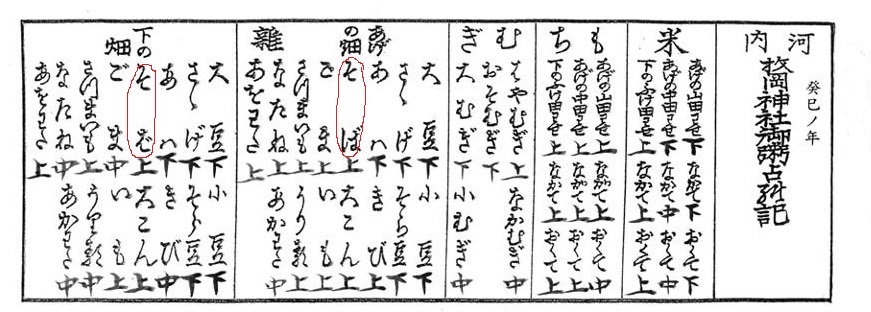 河内
癸巳ノ年
枚岡神社御粥占
米
あげの山田わせ下 ながて下 おくて下
あげの中田わせ下 ながて中 おくて中
下のふけ田わせ上 ながて上 おくて上
もち
あげの山田わせ上 ながて上 おくて中
あげの中田わせ上 ながて上 おくて上
下のふけ田わせ上 ながて上 おくて上
むぎ
はやむぎ 上 なかむぎ 中
おそむぎ 下
大むぎ 下 小むぎ 中
雑
あげの畑
大豆下 小豆下
さゝげ下 そら豆下
あハ下 きび上
そば上 大こん上
ごま上 いも上
さつまいも上 うり類上
なたね上 あかわた中
あをわた上
下の畑
大豆下 小豆下
さゝげ下 そら豆下
あハ下 きび中
そば上 大こん上
ごま中 いも上
さつまいも上 うり類中
なたね中 あかわた中
あをわた上